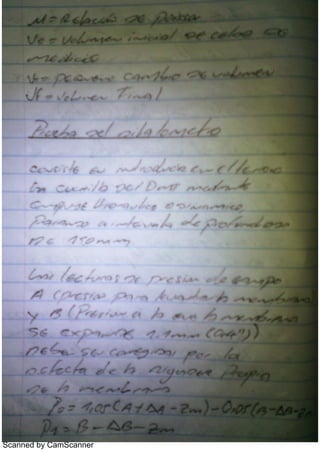 M = Relación de Poisson
Vo = Volumen inicial de celda de
medición
= pequeño cambio de volumen
Vf = Volumen Final
Prueba del dilatometro
consiste en introducir en el terreno
la cuchilla del DMT mediante
empuje Hidraulico o dinamico,
a intervalo de profundidad
DE 150 mm
Las lecturas de presion de campo
A (presion para levantar la membrana)
y B (Presion a la que la membrana
se expande 1.1mm (0.4"))
deben ser corregidas por la
de la rigidez Propia
de la membrana
Po = 1.05(A+ΔA-Zm)-0.05(B-ΔB-Z
P1 = B-ΔB-Zm
Scanned by CamScanner